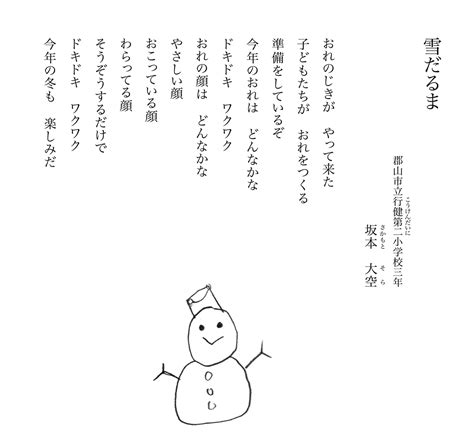 雪だるま
郡山市立行健第二小学校三年
こうけんだいに
坂本 大空
さかもと そら
おれのじきが やって来た
子どもたちが おれをつくる
準備をしているぞ
今年のおれは どんなかな
ドキドキ ワクワク
おれの顔は どんなかな
やさしい顔
おこっている顔
わらってる顔
そうぞうするだけで
ドキドキ ワクワク
今年の冬も 楽しみだ